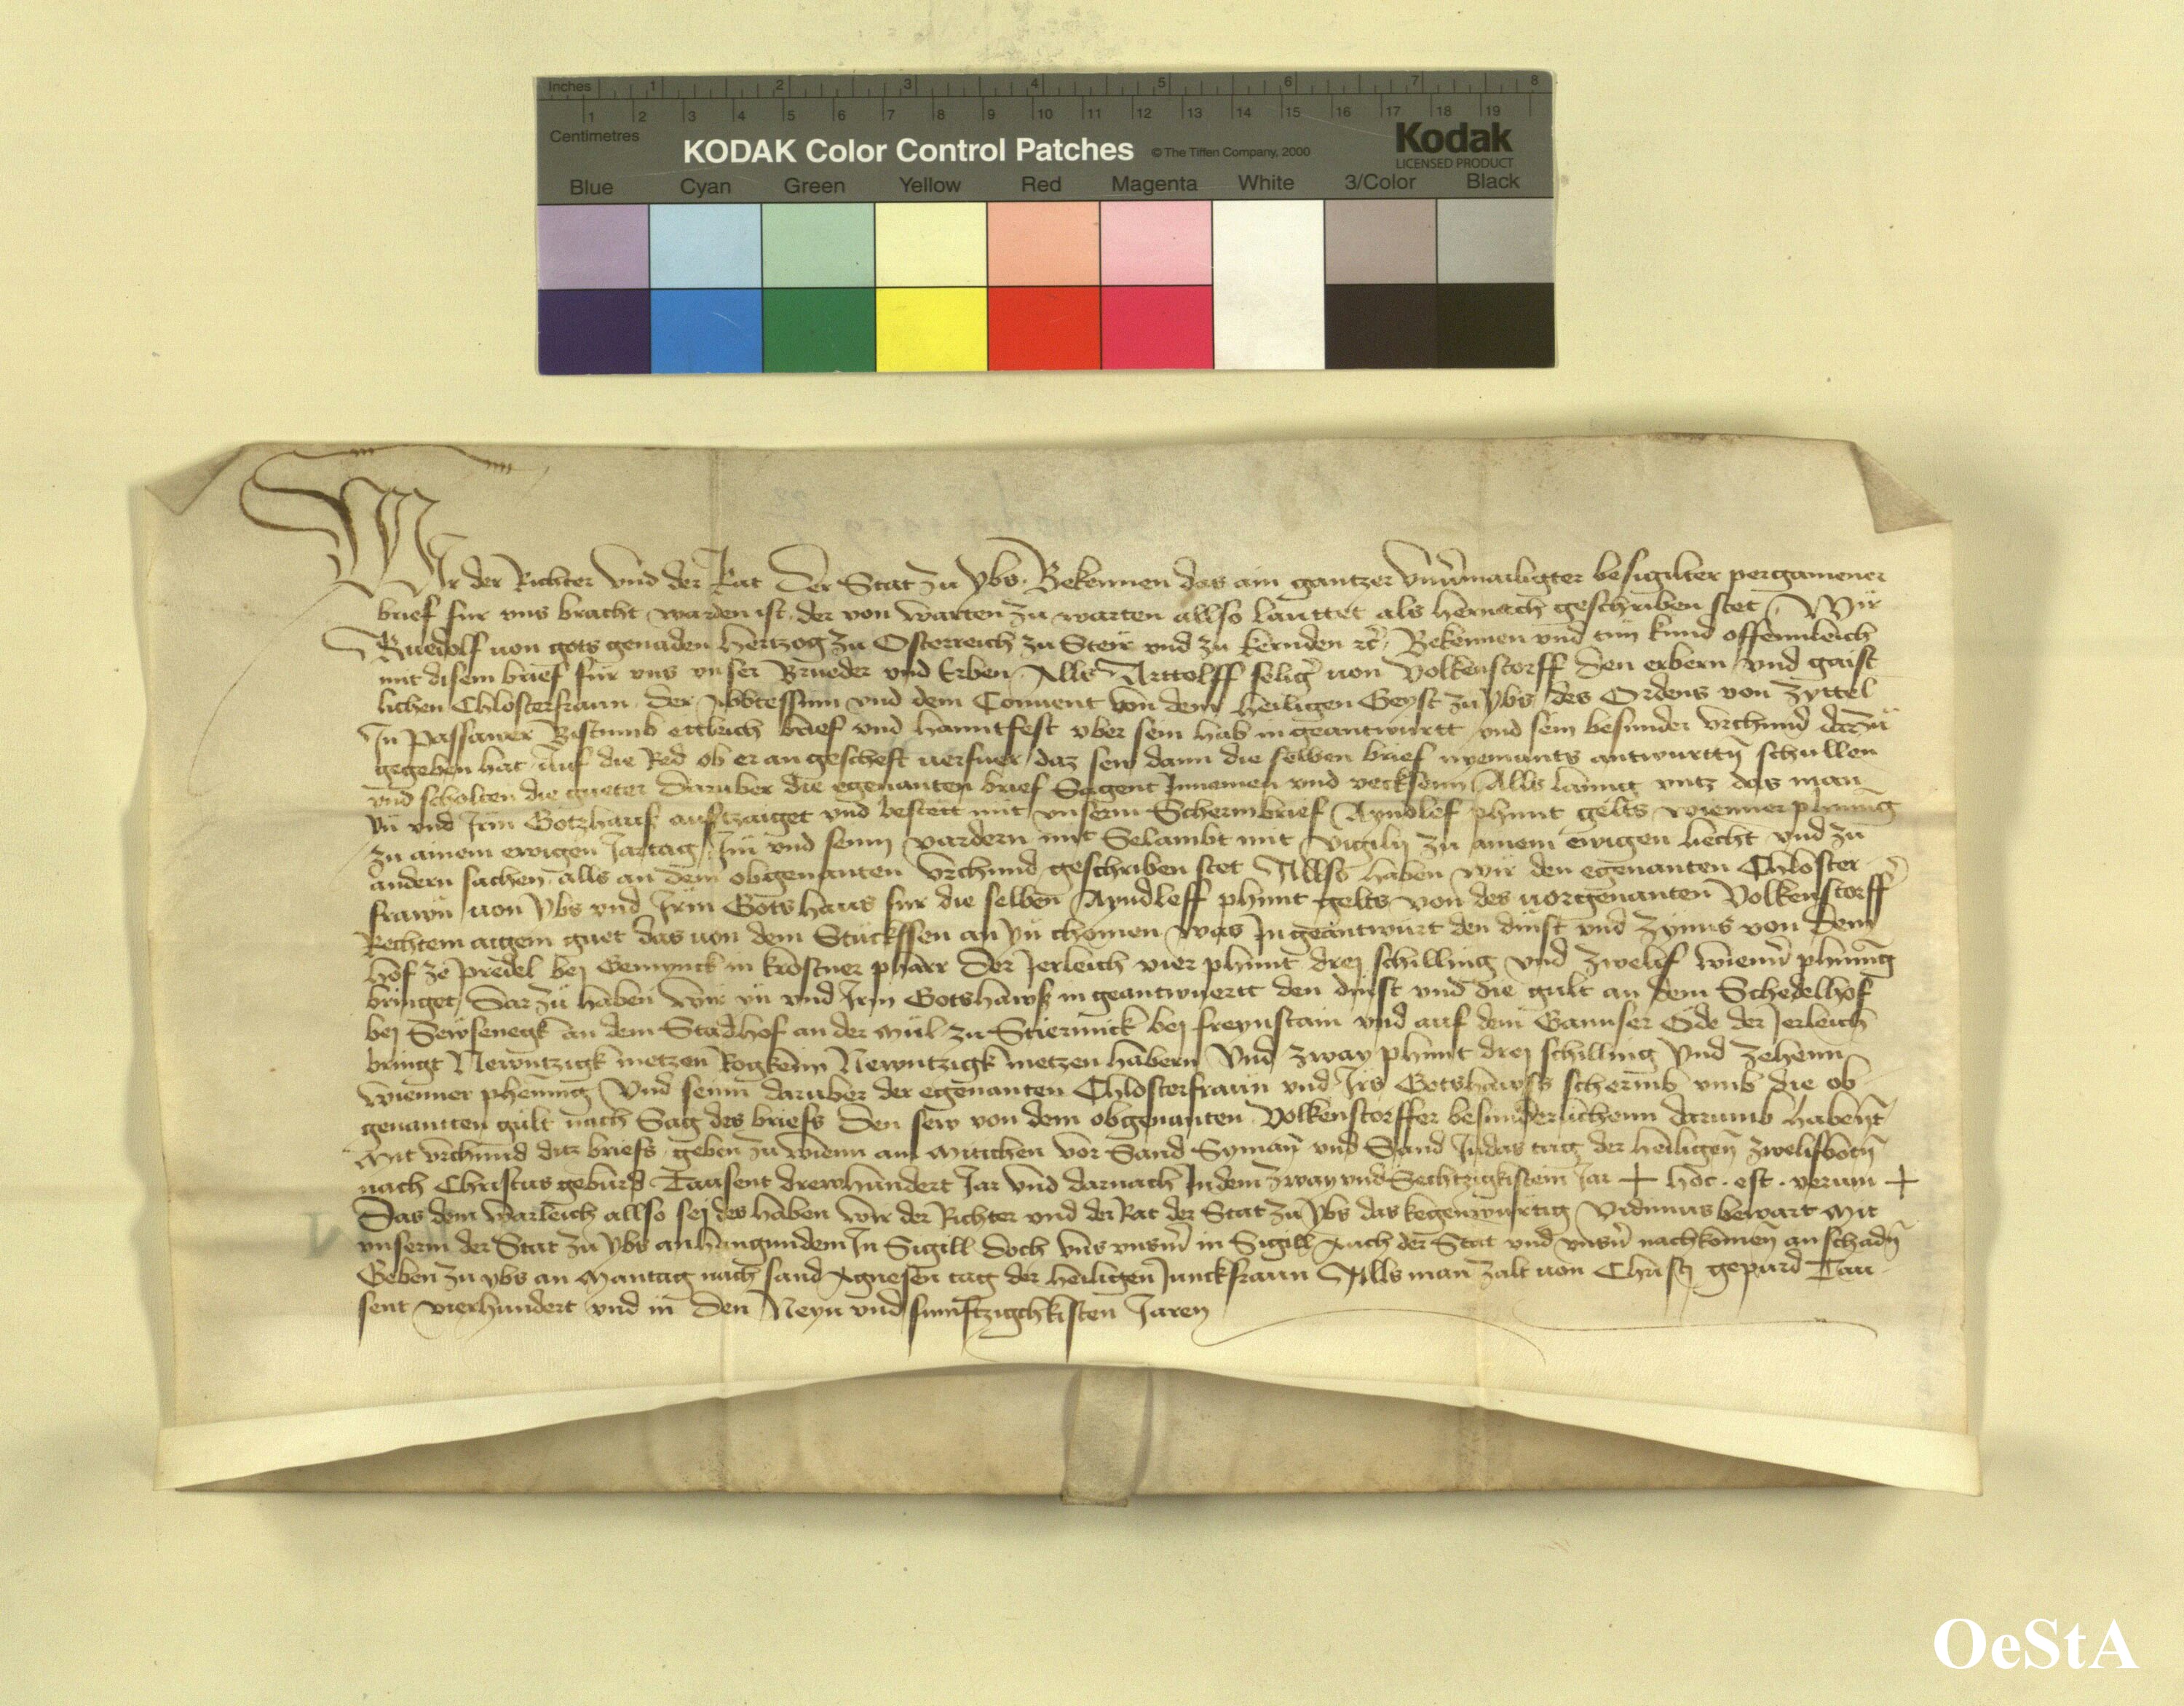 Inches 1 2 3 4 5 6 7 8
1 2 3 4 5 6 7 8 9 10 11 12 13 14 15 16 17 18 19
Centimetres
KODAK Color Control Patches © The Tiffen Company, 2000 Kodak
LICENSED PRODUCT
Blue Cyan Green Yellow Red Magenta White 3/Color Black
Wir der Richter vnd der Rat Der Stat zu Ybs Bekennen das ain gantzer besigilter pergamener
brief fur vns bracht warden ist der von warten zu warten allso lauttet als hernach geschriben stet Wir
Ruedolf von gots genaden Hertzog zu Osterreich zu Steir vnd zu Kernden Bekennen vnd tun kund offennleich
mit disem brief für vns vnser Brueder vnd Erben Alls Arttolff selig von Volkenstorff den erbern vnd gaist
lichen Chlosterfraun der Abbtessinn vnd dem Conuent von dem heiligen Geyst zu Ybs des Ordens von Zyttel
In Passawer Bistumb ettlich brief vnd hanntfest vber sein hab ingeantwürtt vnd sein besunder vrchund darzu
gegeben hat auf die Red ob er an gescheft verfuer daz sew dann die selben brief nyemants antwurttn schullen
vnd scholten die gueter daruber die egenanten brief Sagent Innemen vnd Alls lanng vntz das man
In vnd Irm Gotzhaus vnd bestett mit vnserm Schermbrief Ayndlef phunt gelts wienner phennig
zu ainem ewigen Jartag Im vnd seinn vardern mit Selambt mit Vigily zu ainem ewigen liecht vnd zu
andern sachen alls an dem obgenanten vrchund geschriben stet Allso haben wir den egenanten Chloster
frawn von Ybs vnd Irm Gotshaus für die selben Ayndleff phunt gelts von des vorgenanten Volkenstorffer
Rechtem aigem guet das von dem Stuckssen an In chomen was Ingeantwürt den dinst vnd Zynns von dem
hof ze Predel bei in pharr Der Jerleich vier phunt drei schilling vnd zwelif wienner phening
bringet Darzu haben wir in vnd Irm Gotshaws ingeantwuertt den dinst vnd die gult an dem Schedelhof
bei Sewsenegk an dem Stadhof an der Mül zu bei freynstain vnd auf dem Öde der Jerleich
bringt Newntzigk metzen Rogkenn Newntzigk metzen habern Vnd zway phunt drei schilling Vnd zehenn
wienner phening Vnd seinn daruber der egenanten Chlosterfraun vnd Irs Gotshawss schermb vmb die ob
genantten gült nach Sag des briefs Den sew von dem obgenanten Volkenstorffer besunderlichenn darumb habent
Mit vrchund ditz briefs geben zu wienn am Mitichen vor Sand Symann vnd Sand Judas tag der heiligen zwelifboten
nach Christus geburd Tausent drewhundert Jar vnd darnach In dem zway vnd Sechtzigkistein Jar + hoc · est · verum +
Das dem warleich allso sei des haben wir der Richter vnd der Rat der Stat zu Ybs das kegenwürtig Vidimus bewart Mit
vnserm der Stat zu Ybs anhangundem In Sigill doch vns vnserm in Sigill Auch der Stat vnd vnsern nachkomen an schadn
Geben zu ybs an Mantag nach sand Agnesen tag der heiligen Junckfraun Alls man zalt von Christi gepurd Tau
sent vierhundert vnd in den Neyn vnd funftzigchkisten Jaren
OeStA